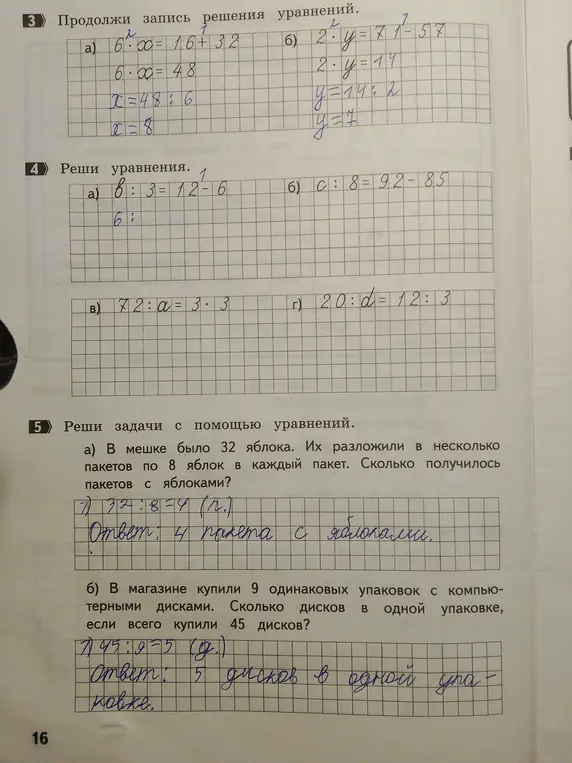 3 Продолжи запись решения уравнений.
2 1 2 7
а) 6 · x = 16 + 32 б) 2 · y = 71 - 57
6 · x = 48 2 · y = 14
x = 48 : 6 y = 14 : 2
x = 8 y = 7
4 Реши уравнения.
1
а) в : 3 = 12 - 6 б) c : 8 = 92 - 85
6 :
в) 72 : a = 3 · 3 г) 20 : d = 12 : 3
5 Реши задачи с помощью уравнений.
а) В мешке было 32 яблока. Их разложили в несколько
пакетов по 8 яблок в каждый пакет. Сколько получилось
пакетов с яблоками?
1) 32 : 8 = 4 (п.)
Ответ: 4 пакета с яблоками.
б) В магазине купили 9 одинаковых упаковок с компью-
терными дисками. Сколько дисков в одной упаковке,
если всего купили 45 дисков?
1) 45 : 9 = 5 (д.)
Ответ: 5 дисков в одной упа-
ковке.
16